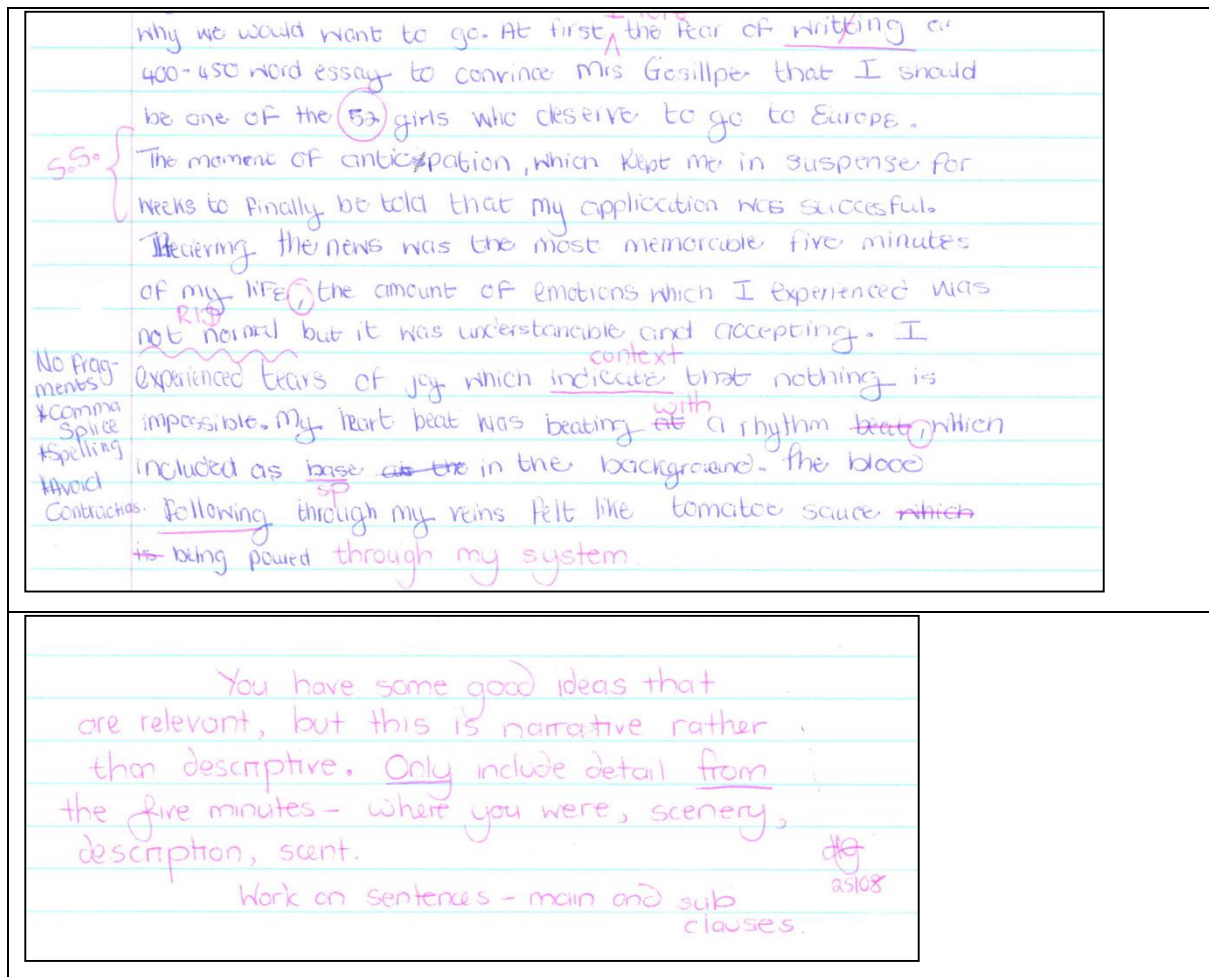 why we would want to go. At first the fear of writting a
400-450 word essay to convince Mrs Gosillpe that I should
be one of the 52 girls who deserve to go to Europe.
S.S. The moment of anticipation, which kept me in suspense for
weeks to finally be told that my application was succesful.
Recieving the news was the most memorable five minutes
of my life, the amount of emotions which I experienced was
RIP
not normal but it was understanable and accepting. I
context
No frag-
ments experienced tears of joy which indicate that nothing is
with
*Comma
Splice impossible. My heart beat was beating at a rhythm beat, which
*Spelling included as base as the in the background. The blood
*Avoid sp
Contractions. following through my veins felt like tomatoe sauce which
is being poured through my system.
You have some good ideas that
are relevant, but this is narrative rather
than descriptive. Only include detail from
the five minutes - where you were, scenery,
description, scent.
25/08
Work on sentences - main and sub
clauses.